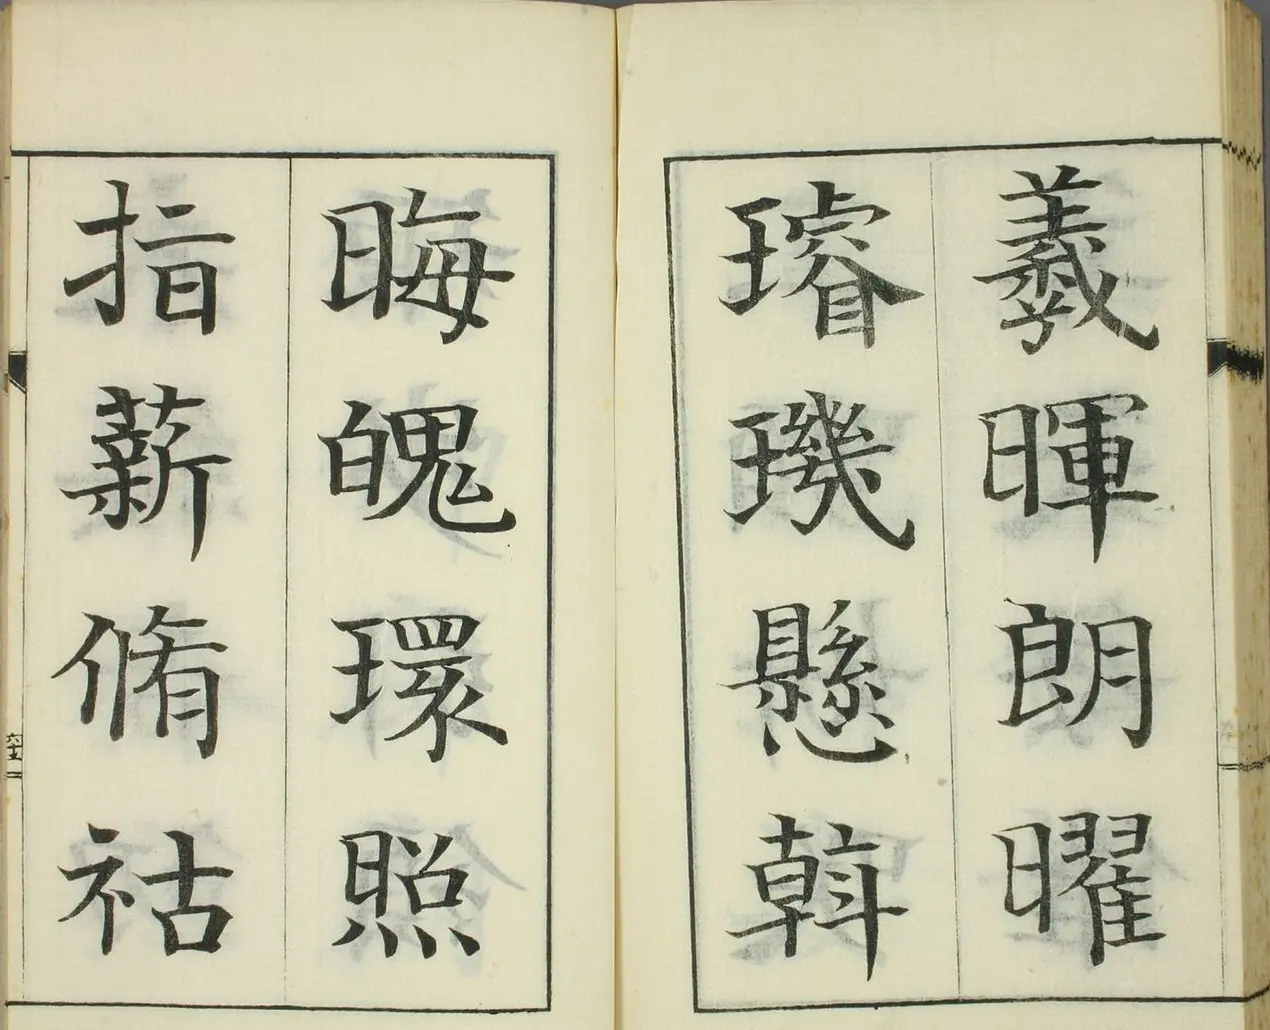 羲暉朗曜
璿璣懸斡
晦魄環照
指薪脩祜